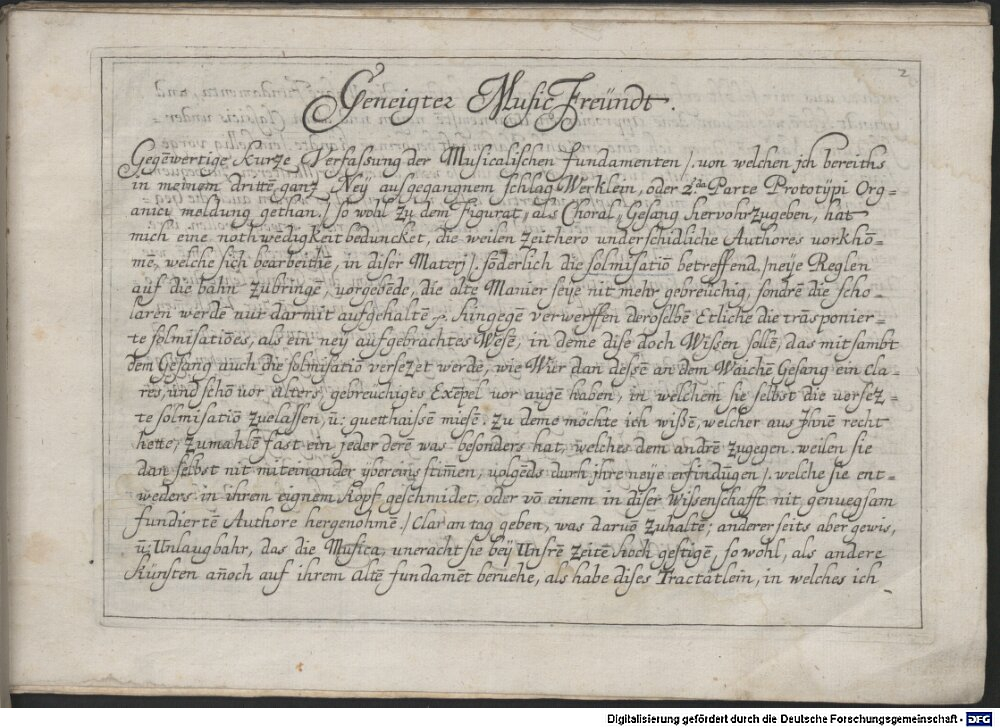 2
Geneigter Music Freündt.
Gegēwertige Kurze Verfassung der Musicalischen fundamenten /. von welchen jch bereiths
in meinem drittē ganz Neÿ ausgegangnem schlag Werklein, oder 2da Parte Prototÿpi Or̄g=
anici meldung gethan. / so wohl zu dem Figurat „ als Choral „ Gesang hervohrzugeben, hat
mich eine nothwēdigkeit beduncket, die weilen zeithero underschidliche Authores vorkhō=
mē, welche sich bearbeithē, in diser Materj /. sōderlich die solmisatiō betreffend. / neÿe Reglen
auf die bahn zubringē, vorgebēde, die alte Manier seÿe nit mehr gebreüchig, sondrē die scho=
laren werdē nur darmit aufgehaltē, hingegē verwerffen deroselbē Etliche die trāsponier=
te solmisatiōes, als ein neÿ aufgebrachtes Wesē, in deme dise doch Wissen sollē, das mit sambt
dem Gesang auch die solmisatiō versezet werdē, wie Wür dan dessē an dem Waichē Gesang ein cla=
res, und schō vor alters, gebreuchiges Exēpel vor augē haben, in welchem sie selbst die versez=
te solmisatiō zuelassen, ū: guetthaissē miesē. zu deme möchte ich wißē, welcher aus Jhnē recht
hette, Zumahlē fast ein jeder derē was besonders hat, welches dem andrē zugegen. weilen sie
dan selbst nit miteinander ÿbereinstim̄en, volgēds durh jhre neÿe erfindūgen /. welche sie ent=
weders in ihrem eignem Kopf geschmidet, oder vō einem in diser Wissenschafft nit genuegsam
fundiertē Authore hergenohmē. / Clar an tag geben, was darvō zuhaltē; anderer seits aber gewis,
ū: Unlaugbahr, das die Musica, uneracht sie beÿ Unsrē zeitē hoch gestigē, so wohl, als andere
Künsten an̄och auf ihrem altē fundamēt beruehe, als habe dises Tractätlein, in welches ich
Digitalisierung gefördert durch die Deutsche Forschungsgemeinschaft - DFG